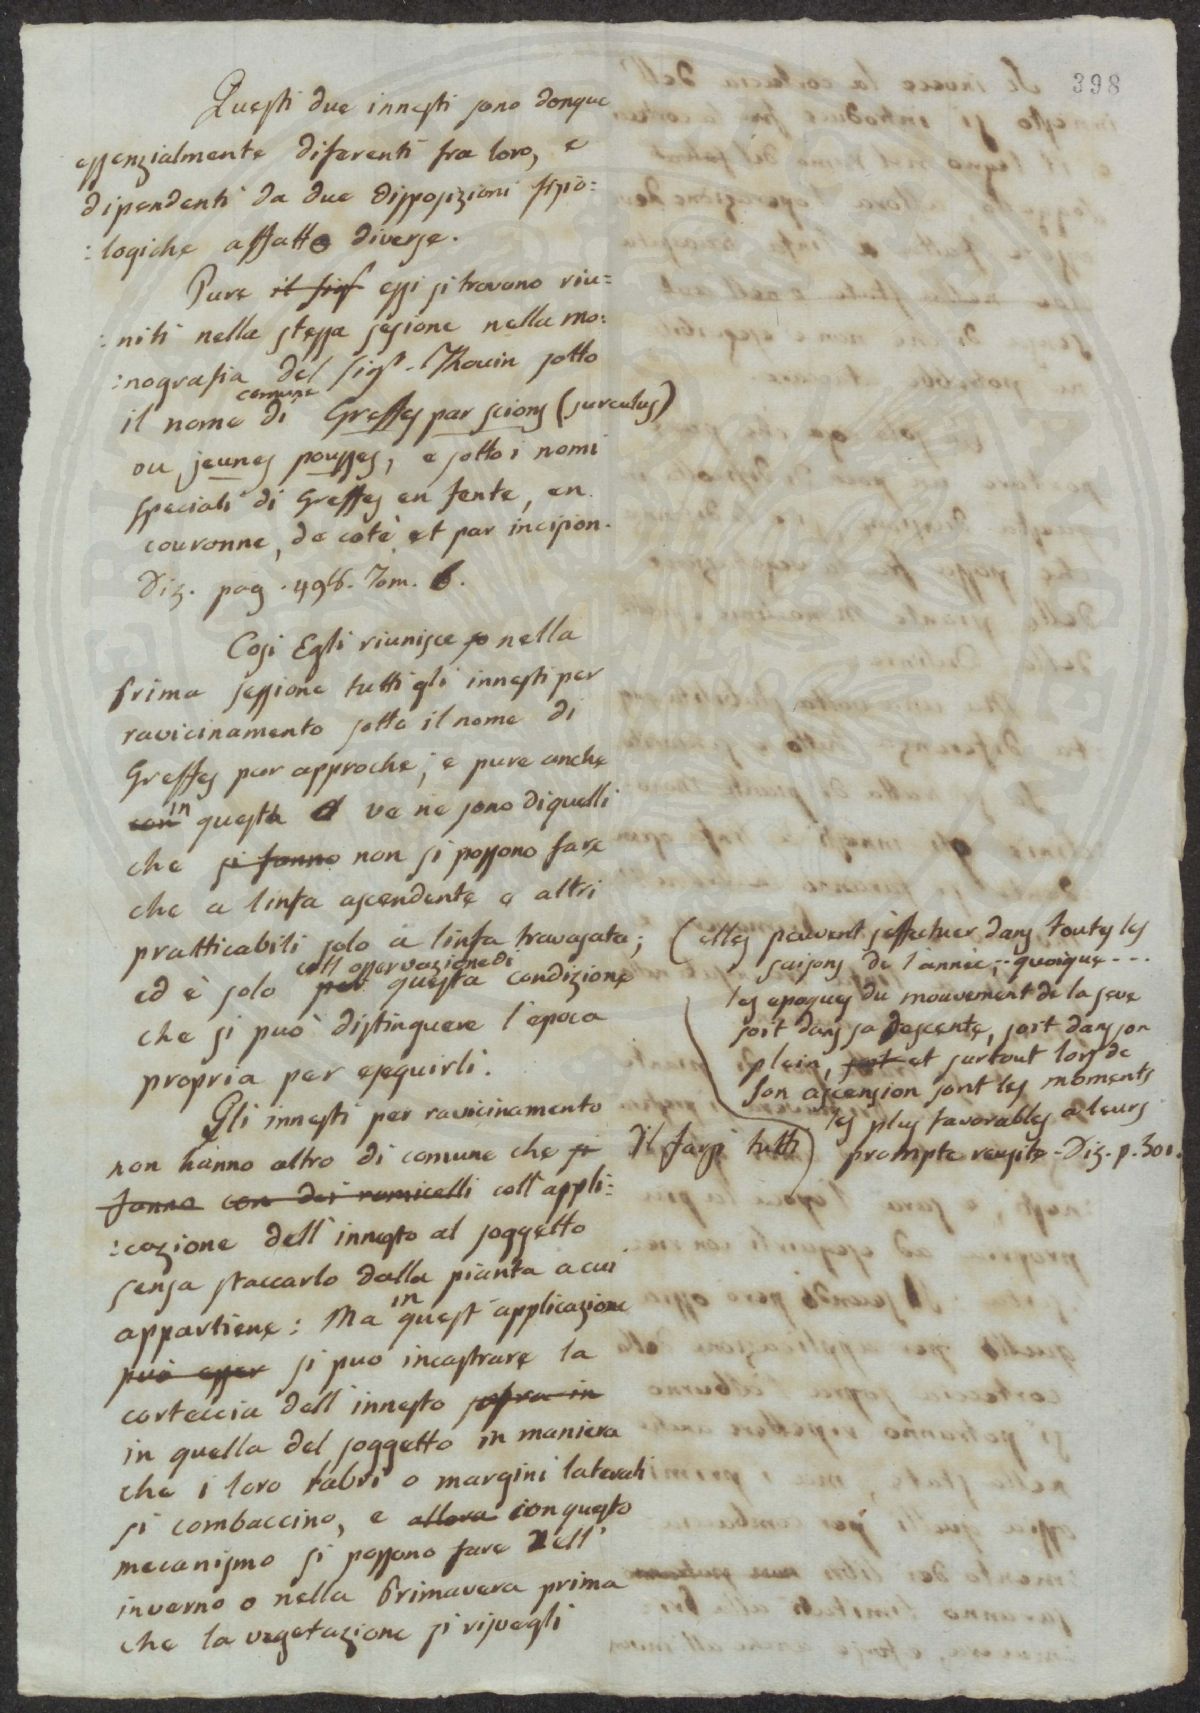 398
Questi due innesti sono donque
essenzialmente diferenti fra loro, e
dipendenti da due disposizioni fisio=
:logiche affatto diverse.
Pure il sig essi si trovano riu=
:niti nella stessa sesione nella mo:
:nografia del Sig.r Thouin sotto
comune
il nome di Greffes par scions (surculus)
ou jeunes pousses, e sotto i nomi
speciali di Greffes en fente, en
couronne, de coté et par incision.
Diz. pag. 496. Tom. 6.
Cosi Egli riunisce so nella
prima sessione tutti gli innesti per
ravicinamento sotto il nome di
Greffes par approche; e pure anche
in
con questa ve ne sono di quelli
che si fanno non si possono fare
che a linfa ascendente e altri
pratticabili solo a linfa travasata;
coll osservazione di
ed è solo per questa condizione
che si può distinguere l'epoca
propria per eseguirli.
Gli innesti per ravicinamento
non hanno altro di comune che si
fanno con dei ramicelli coll'appli:
:cazione dell'innesto al soggetto
senza staccarlo dalla pianta a cui
in
appartiene: Ma quest'applicazione
può esser si puo incastrare la
corteccia dell'innesto sopra in
in quella del soggetto in maniera
che i loro labri o margini laterali
si combaccino, e allora con questo
mecanismo si possono fare nell'
inverno o nella Primavera prima
che la vegetazione si risvegli
(elles peuvent s'effectuer dans toutes les
saisons de l'année; quoique ---
les epoques du mouvement de la seve
soit dans sa descente, soit dans son
plein, soit et surtout lors de
son ascension sont les moments
les plus favorables a leurs
prompte reusite - Diz. p. 501.
Il farsi tutti)